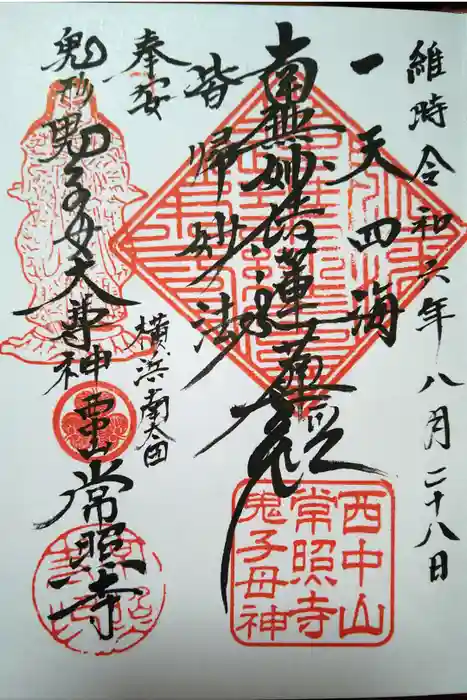 維時令和六年八月二十八日
一天四海
南無妙法蓮華経
皆帰妙法
奉安
鬼形鬼子母大尊神
横浜南太田
常照寺
西中山
常照寺
鬼子母神